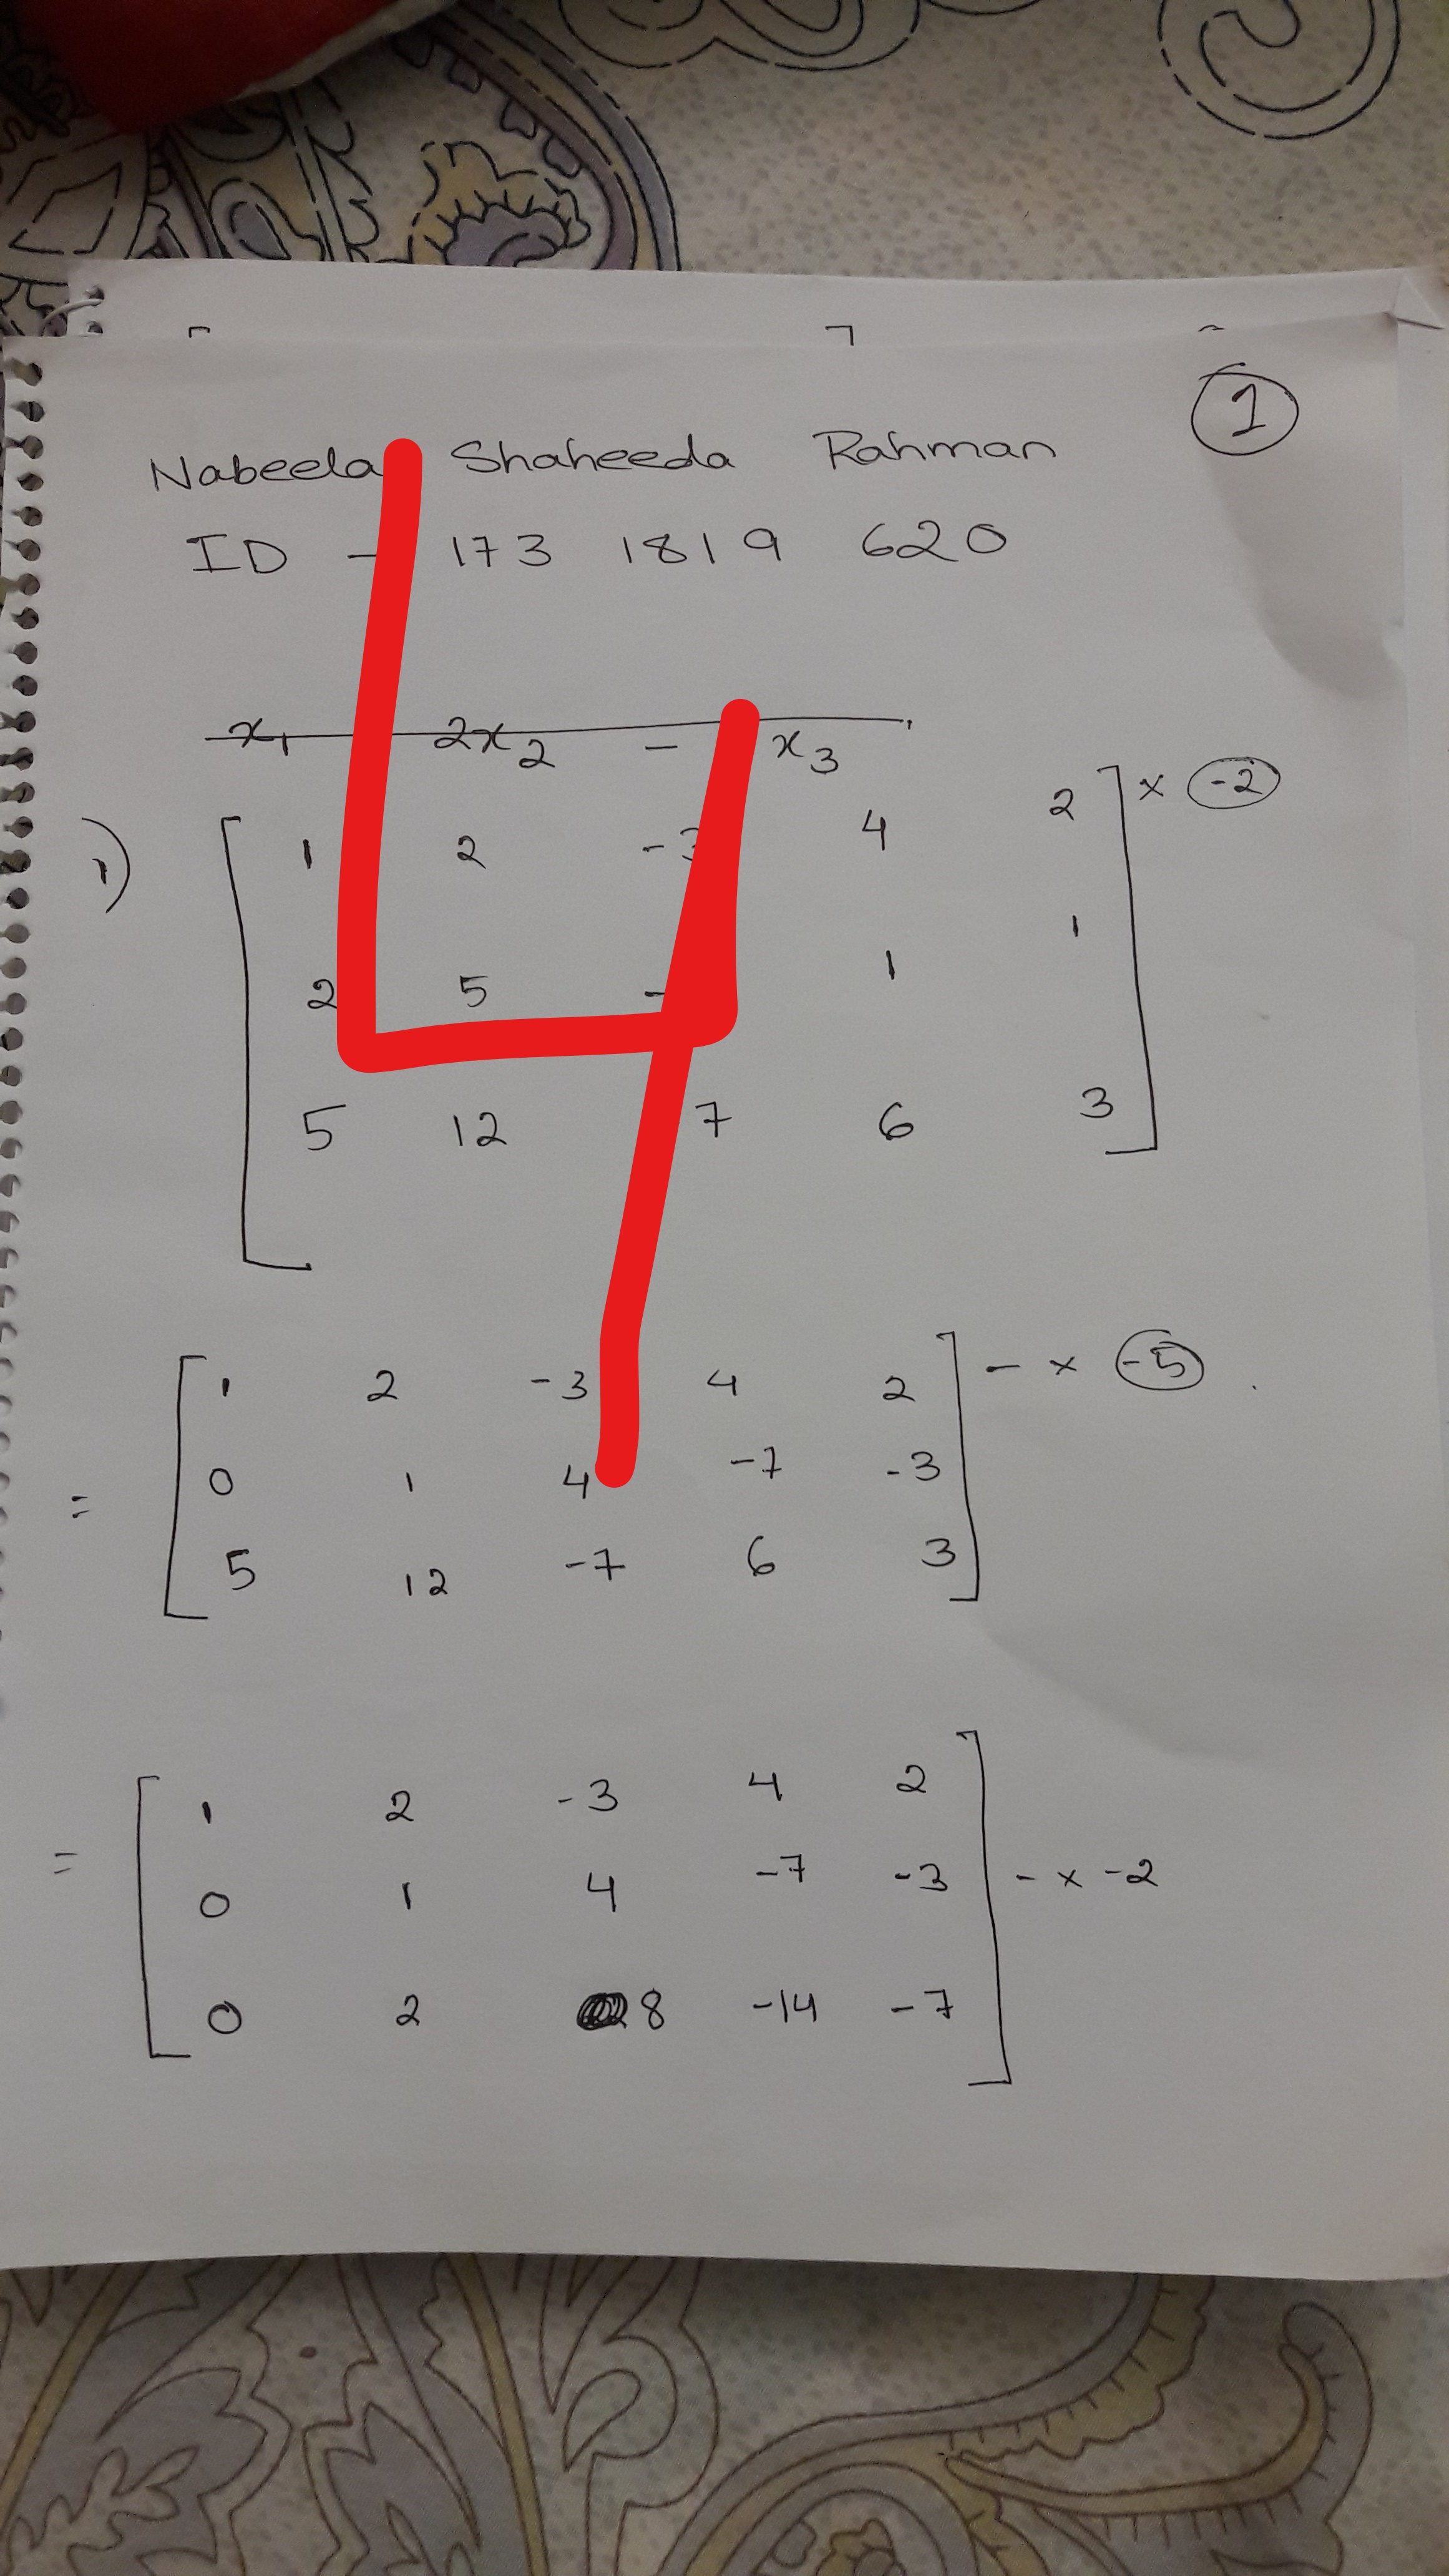 1
Nabeela Shaheeda Rahman
ID - 173 1819 620
x1 2x2 - x3
1) 1 2 -3 4 2 × -2
2 5 - 1 1
5 12 7 6 3
= 1 2 -3 4 2 - × -5
0 1 4 -7 -3
5 12 -7 6 3
= 1 2 -3 4 2
0 1 4 -7 -3 - × -2
0 2 8 -14 -7
4